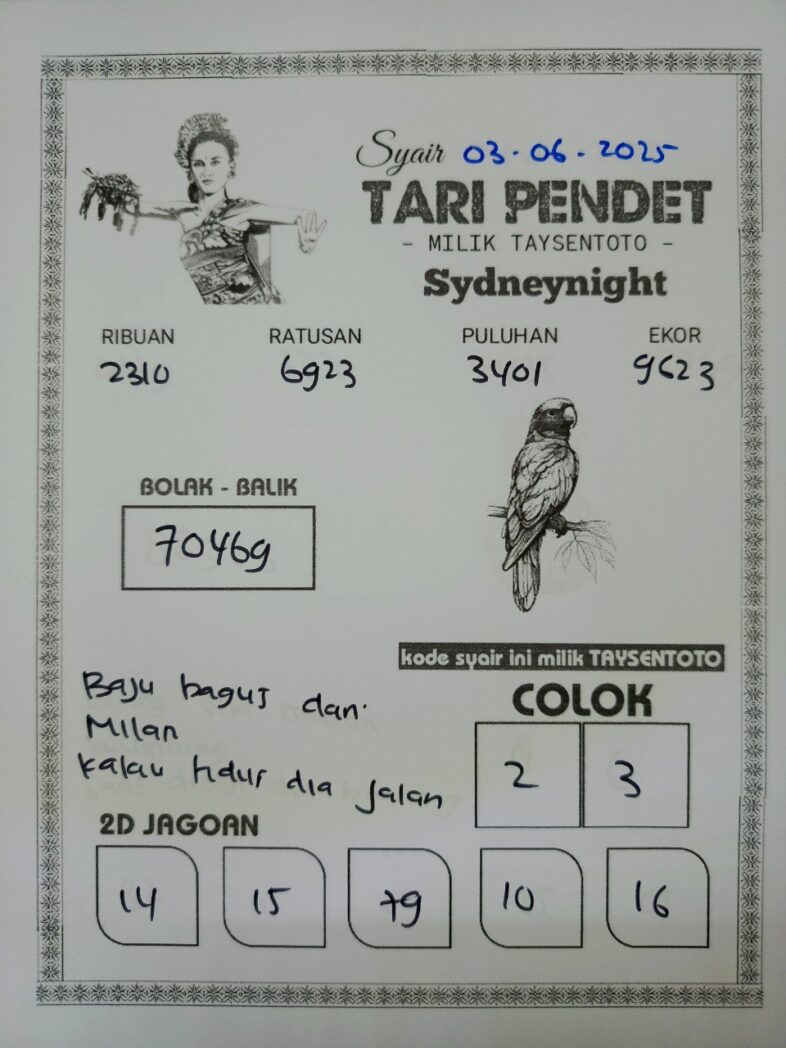 Syair 03-06-2025
TARI PENDET
- MILIK TAYSENTOTO -
Sydneynight
RIBUAN RATUSAN PULUHAN EKOR
2310 6923 3401 9623
BOLAK - BALIK
70469
kode syair ini milik TAYSENTOTO
COLOK
2 3
Baju bagus dari
Milan
kalau tidur dia jalan
2D JAGOAN
14 15 79 10 16